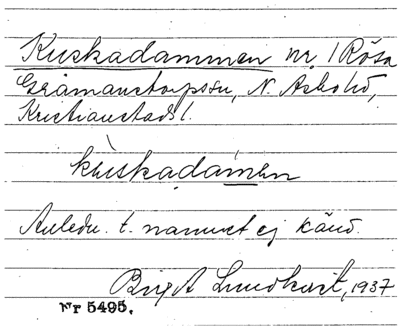 Kuskadammen nr 1 Rösa
Gråmanstorpssn, N. Åsbohd,
Kristianstads l.
kùskadámen
Anledn. t. namnet ej känd.
Birgit Lundkvist, 1937
Nr 5495.